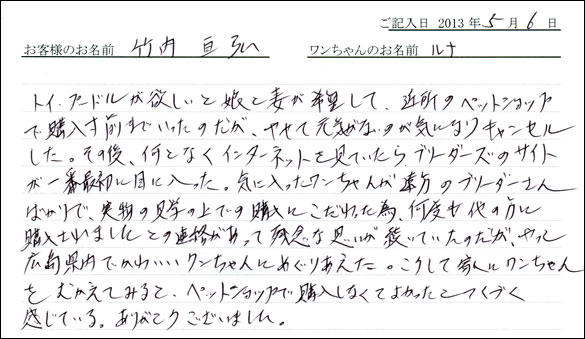 ご記入日 2013年5月6日
お客様のお名前 竹内 亘弘 ワンちゃんのお名前 ルナ
トイ・プードルが欲しいと娘と妻が希望して、近所のペットショップ
で購入寸前までいったのだが、やせて元気がないのが気になりキャンセル
した。その後、何となくインターネットを見ていたら、ブリーダーズのサイト
が一番最初に目に入った。気に入ったワンちゃんが遠方のブリーダーさん
ばかりで、実物の見学の上での購入にこだわった為、何度も他の方に
購入されましたとの連絡があって残念な思いが続いていたのだが、やっと
広島県内でかわいいワンちゃんにめぐりあえた。こうして家にワンちゃん
をむかえてみると、ペットショップで購入しなくてよかったとつくづく
感じている。ありがとうございました。